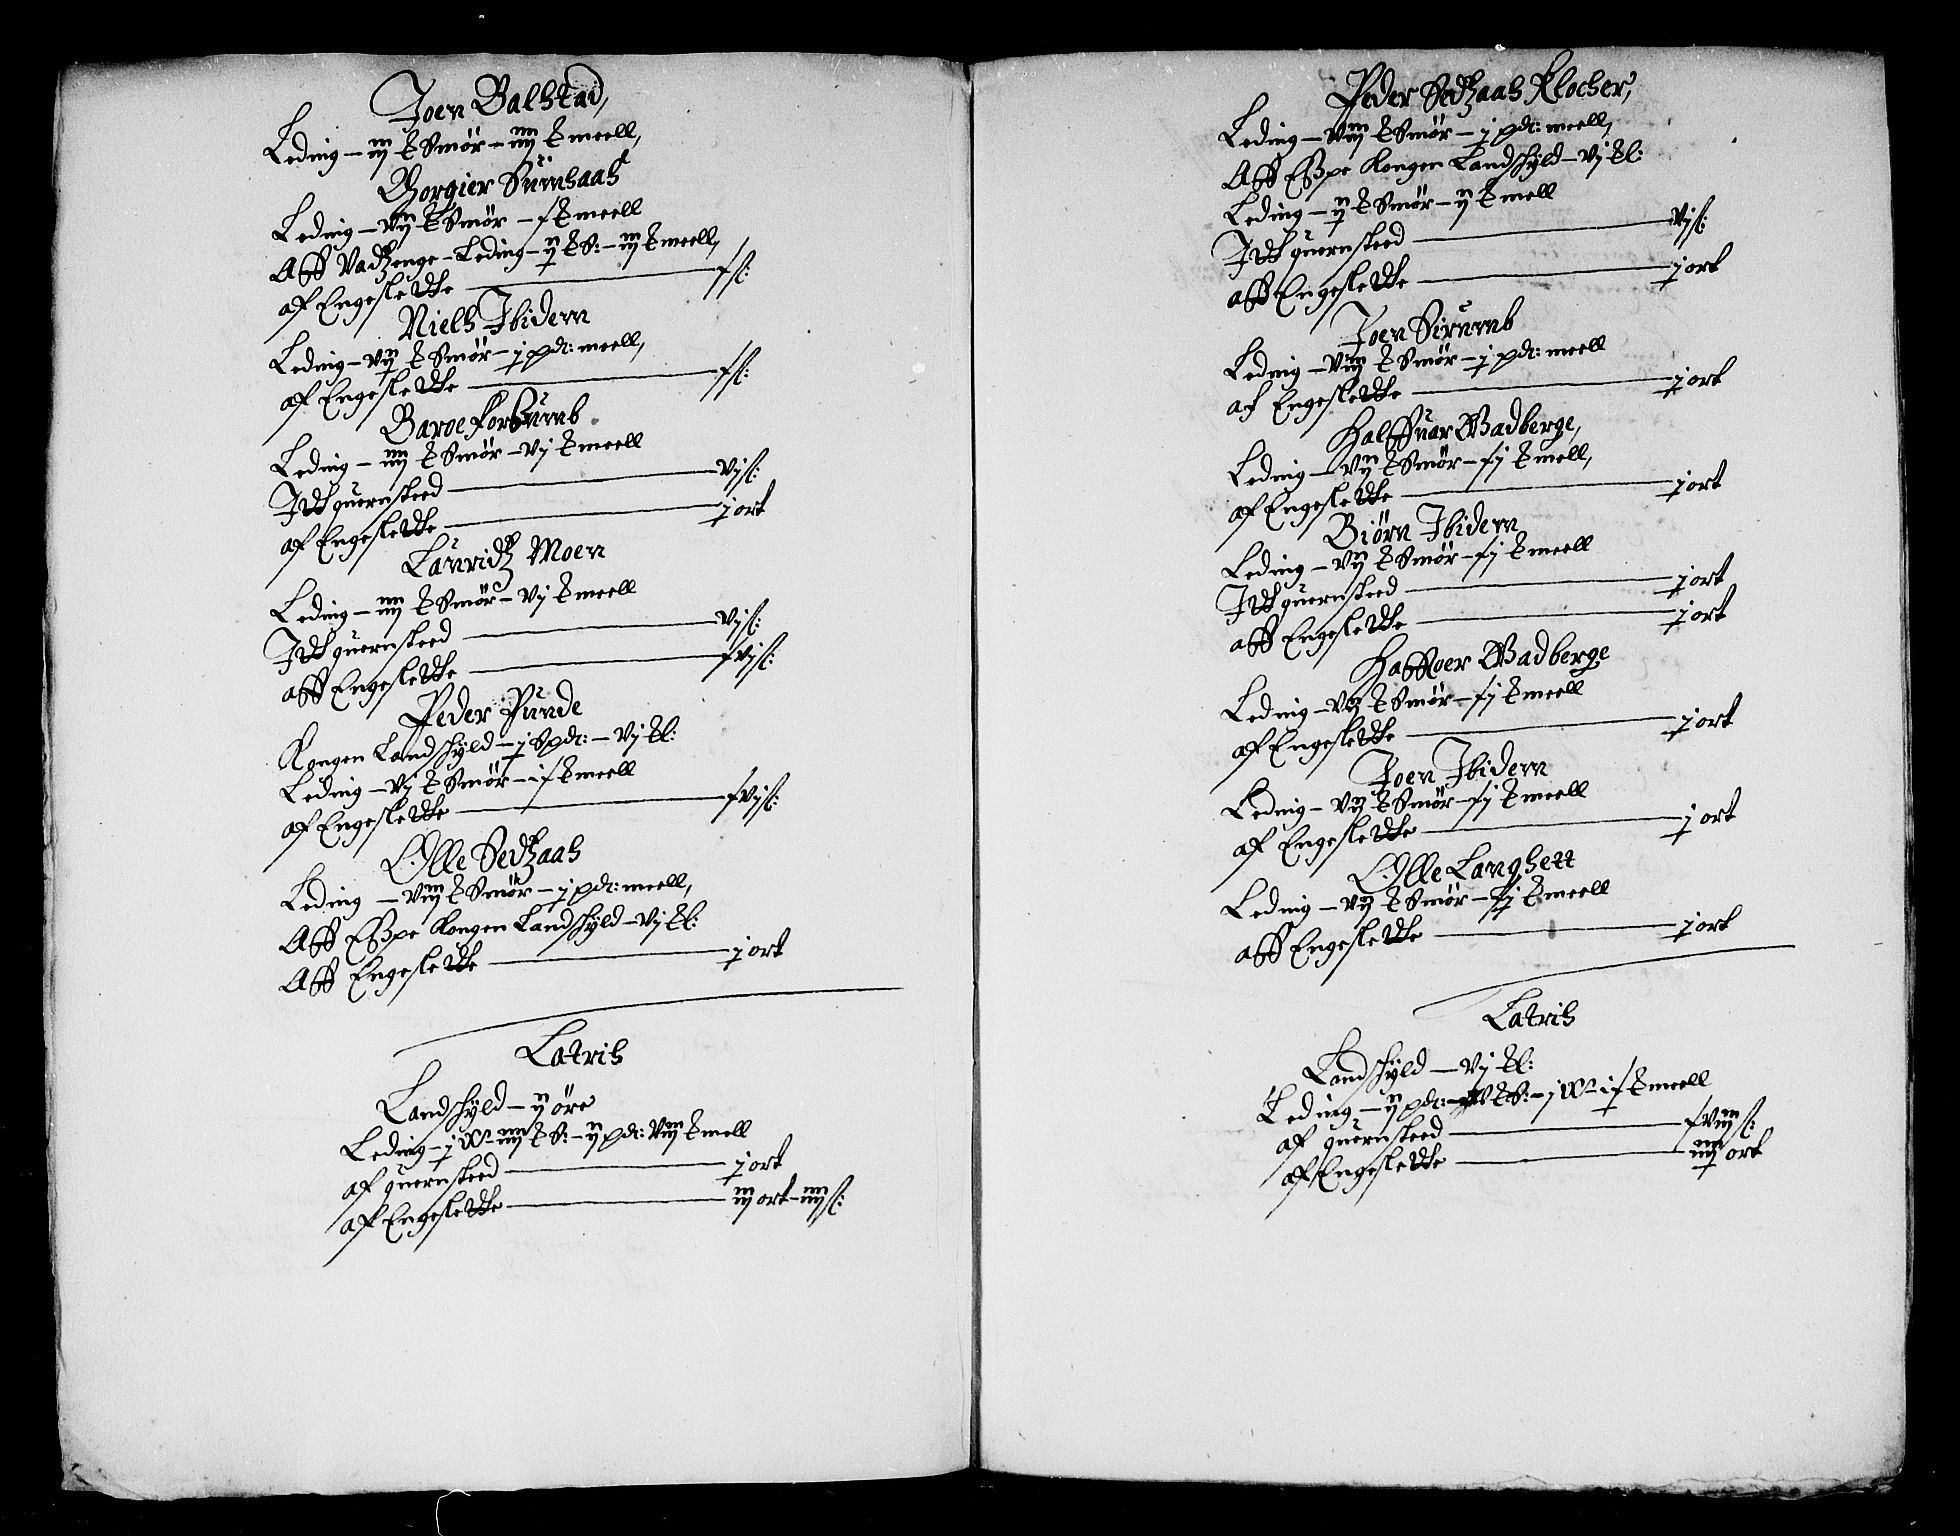 Joen Balstad,
Leding – iij ℔ Smör – iiij ℔ meell,
Borgier Sŭmhaaß
Leding – vij ℔ Smør – ƒ ℔ meell
Aff Vadzenge – Leding – ij ℔ S: – iij ℔ meell,
af Engeslette — ƒ ſ:
Niels Ibidem
Leding – vij ℔ Smör – j pd: meell,
af Engeslette — ƒ ſ:
Baroe Forbŭmb
Leding – iiij ℔ Smör – vj ℔ meell
Itt qŭernsteed — vj ſ:
af Engeslette — j ort
Laŭridz Moen
Leding – iiij ℔ Smör – vj ℔ meell
Itt qŭernsteed — vj ſ:
aff Engeslette — ƒvj ſ:
Peder Pŭnde
Kongen Landschÿld – j Spd: – vj ℔ ſ:
Leding – vj ℔ Smör – iƒ ℔ meell
af Engeslette — ƒvj ſ:
Olle Sedzaaß
Leding – viij ℔ Smör – j pd: meell,
Aff Eßpe Kongen Landschÿld – vj ℔ ſ:
Aff Engeslette — j ort
Latris
Landschÿld – ij öre
Leding – j W: iiij ℔ S: – ij pd: viij ℔ mell
af qŭernsteed — j ort
af Engeslette — iij ort – iiij ſ:
Peder Sedzaaß Klocher,
Leding – viij ℔ Smör – j pd: meell,
Aff Eßpe Kongen Landschÿld – vj ℔ ſ:
Leding – ij ℔ Smör – ij ℔ mell
Itt qŭernsteed — vj ſ:
aff Engeslette — j ort
Joen Sirŭmb
Leding – viij ℔ Smör – j pd: meell
af Engeslette — j ort
Halffŭar Wadberge,
Leding – vij ℔ Smör – ƒj ℔ mell,
af Engeslette — j ort
Biörn Ibidem
Leding – vij ℔ Smör – ƒj ℔ meell
Itt qŭernsteed — j ort
aff Engeslette — j ort
Haffoer Wadberge
Leding – vij ℔ Smör – ƒj ℔ meell
af Engeslette — j ort
Joen Ibidem
Leding – vij ℔ Smör – ƒj ℔ meell
af Engeslette — j ort
Olle Langsett
Leding – vij ℔ Smör – ƒj ℔ meell
aff Engeslette — j ort
Latris
Landschÿld – vj ℔ ſ:
Leding – ij pd: – ℔ S: – j W: iƒ ℔ meell
af qŭernsteed — ƒviij ſ:
af Engeslette — iiij ort